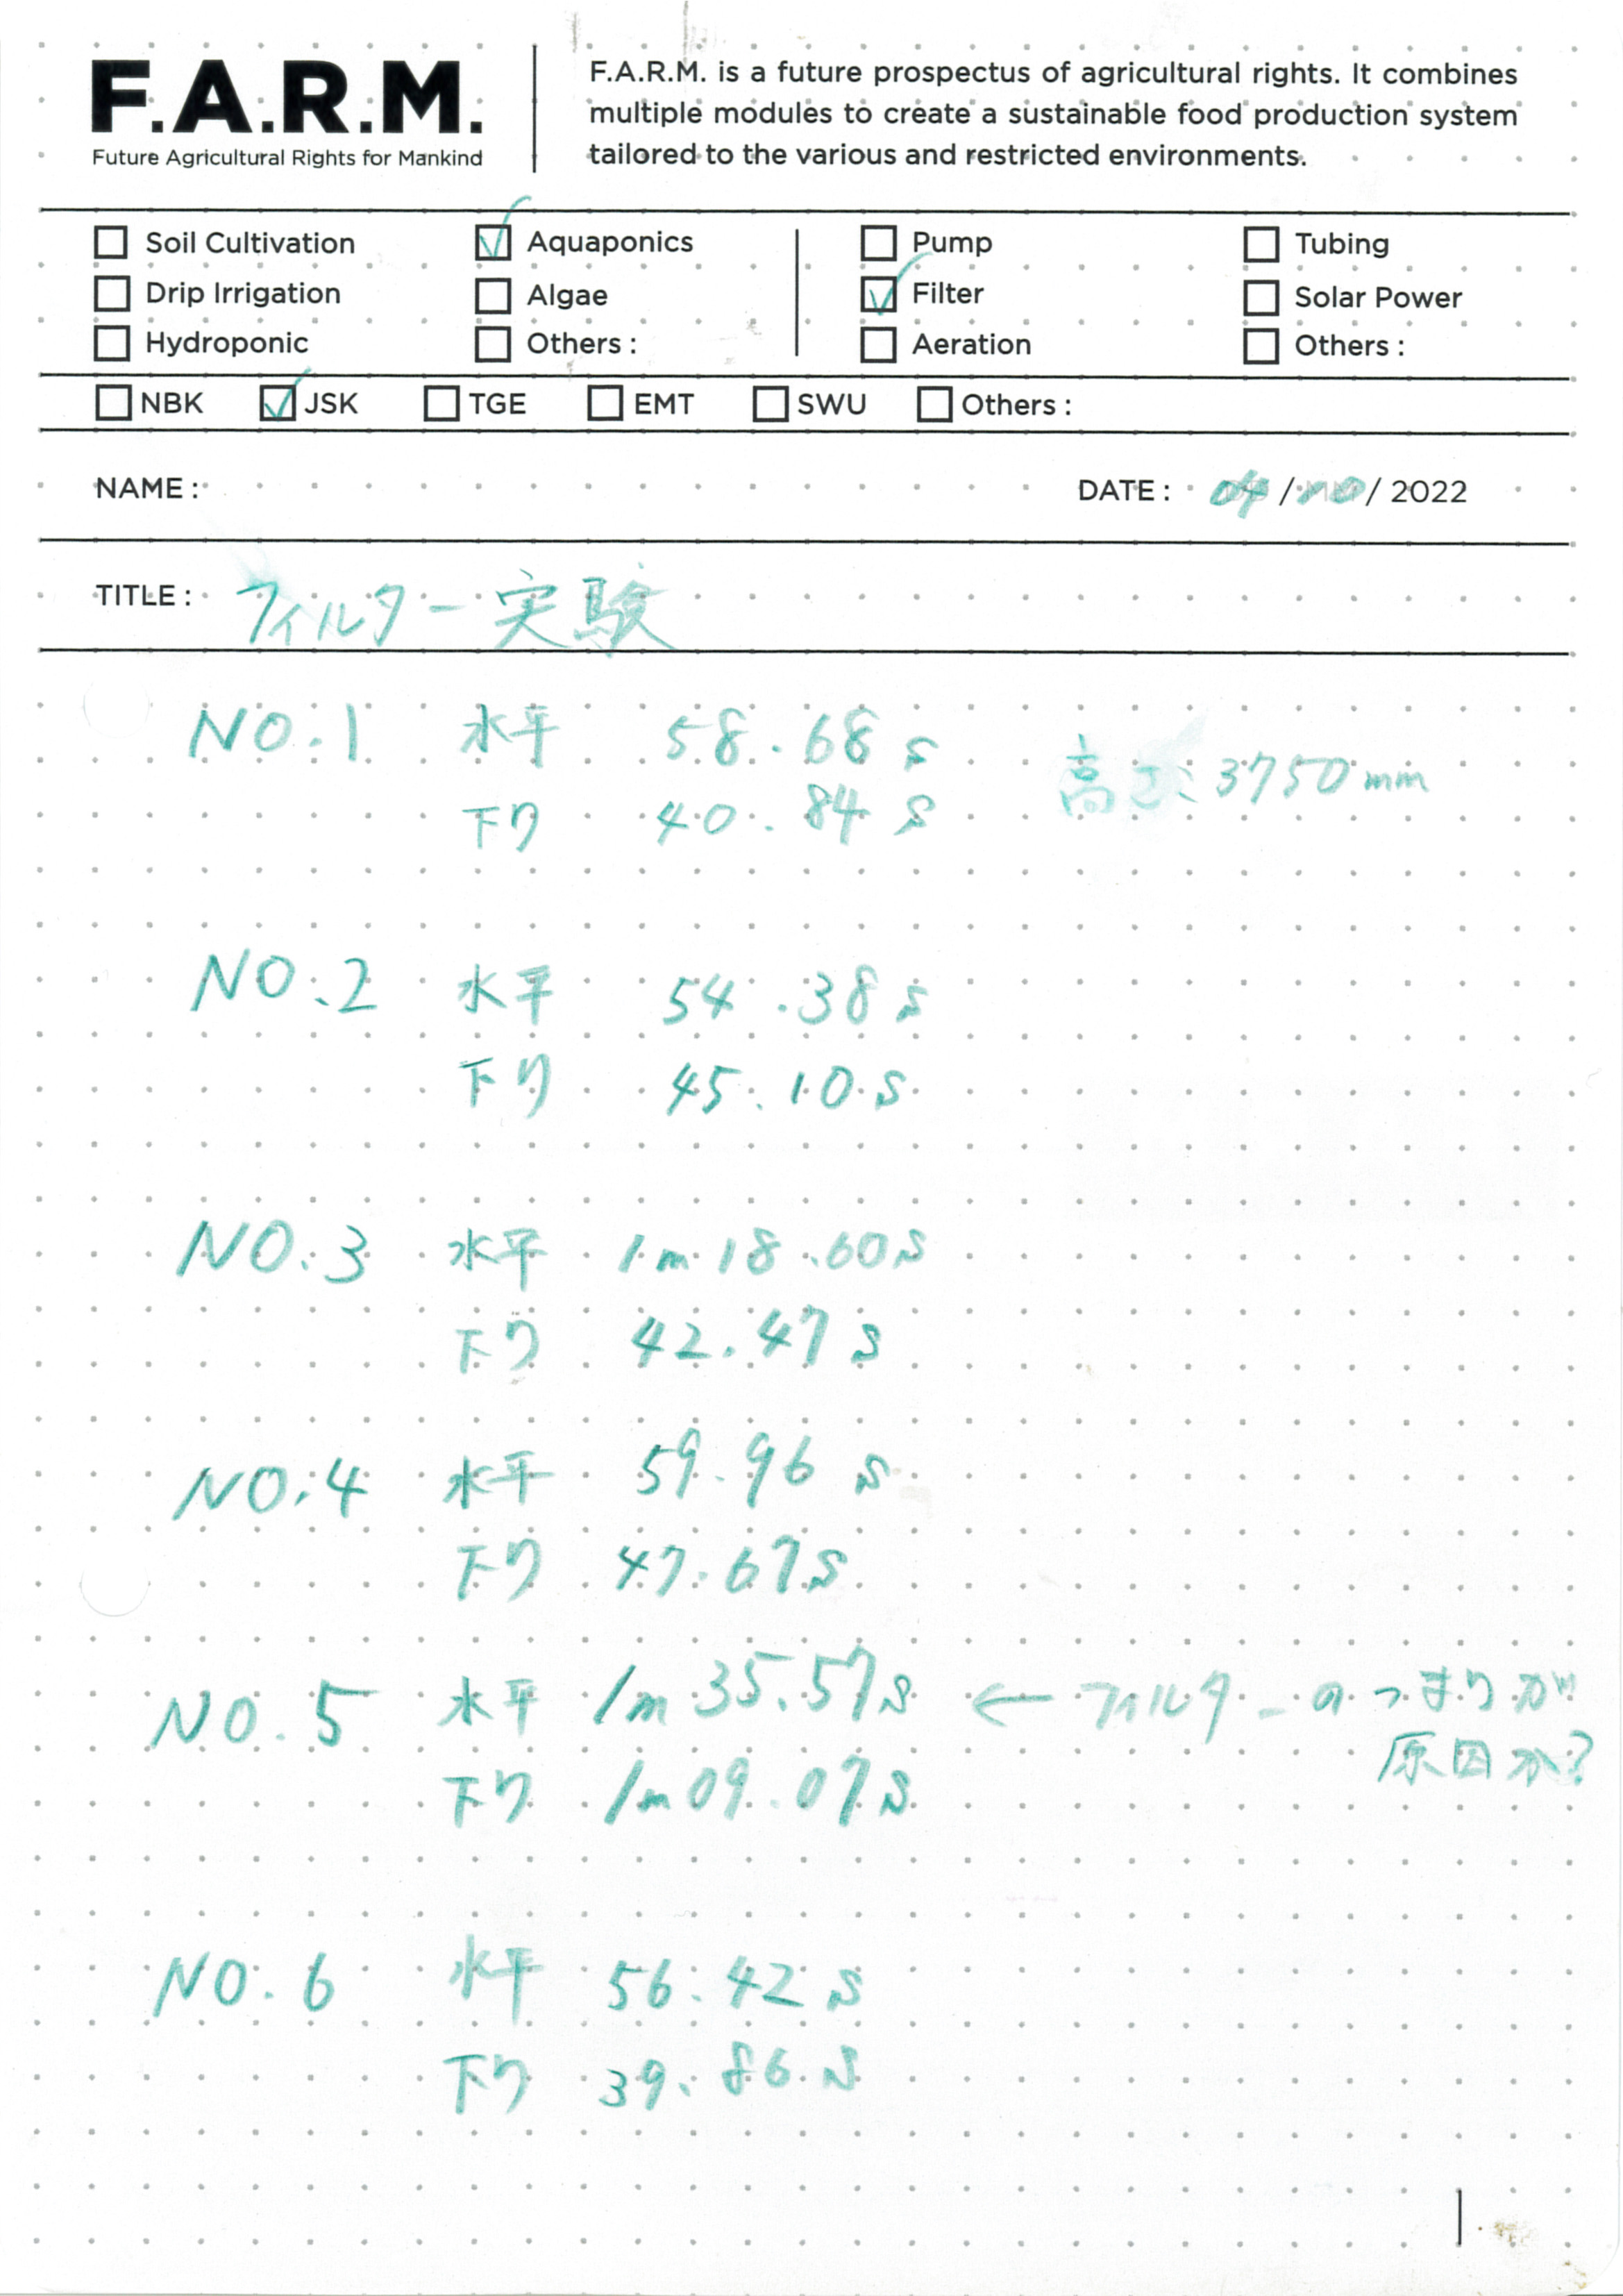 F.A.R.M.
Future Agricultural Rights for Mankind
F.A.R.M. is a future prospectus of agricultural rights. It combines
multiple modules to create a sustainable food production system
tailored to the various and restricted environments.
Soil Cultivation Aquaponics Pump Tubing
Drip Irrigation Algae Filter Solar Power
Hydroponic Others : Aeration Others :
NBK JSK TGE EMT SWU Others :
NAME : DATE : 04 / 10 / 2022
TITLE : フィルター実験
NO.1 水平 58.68s
高さ: 3750mm
下り 40.84s
NO.2 水平 54.38s
下り 45.10s
NO.3 水平 1m18.60s
下り 42.47s
NO.4 水平 59.96s
下り 47.67s
NO.5 水平 1m35.57s ← フィルターのつまりが
原因か?
下り 1m09.07s
NO.6 水平 56.42s
下り 39.86s